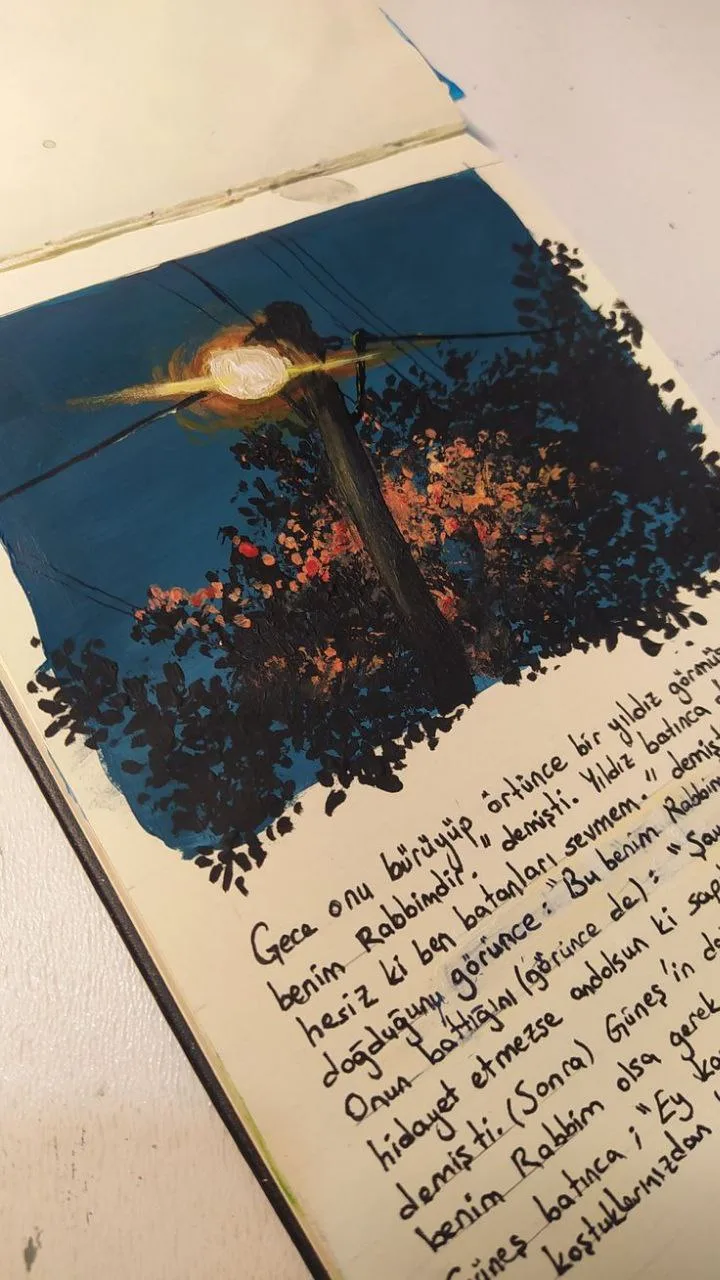 Gece onu bürüyüp örtünce bir yıldız görmüş
benim Rabbimdir." demişti. Yıldız batınca
hesiz ki ben batanları sevmem." demişti
doğduğunu görünce: "Bu benim Rabbim
Onun battığını (görünce de): "
hidayet etmezse andolsun ki
demişti. (Sonra) Güneş'in
benim Rabbim olsa gerek
Güneş batınca; "Ey
koştuklarınızdan